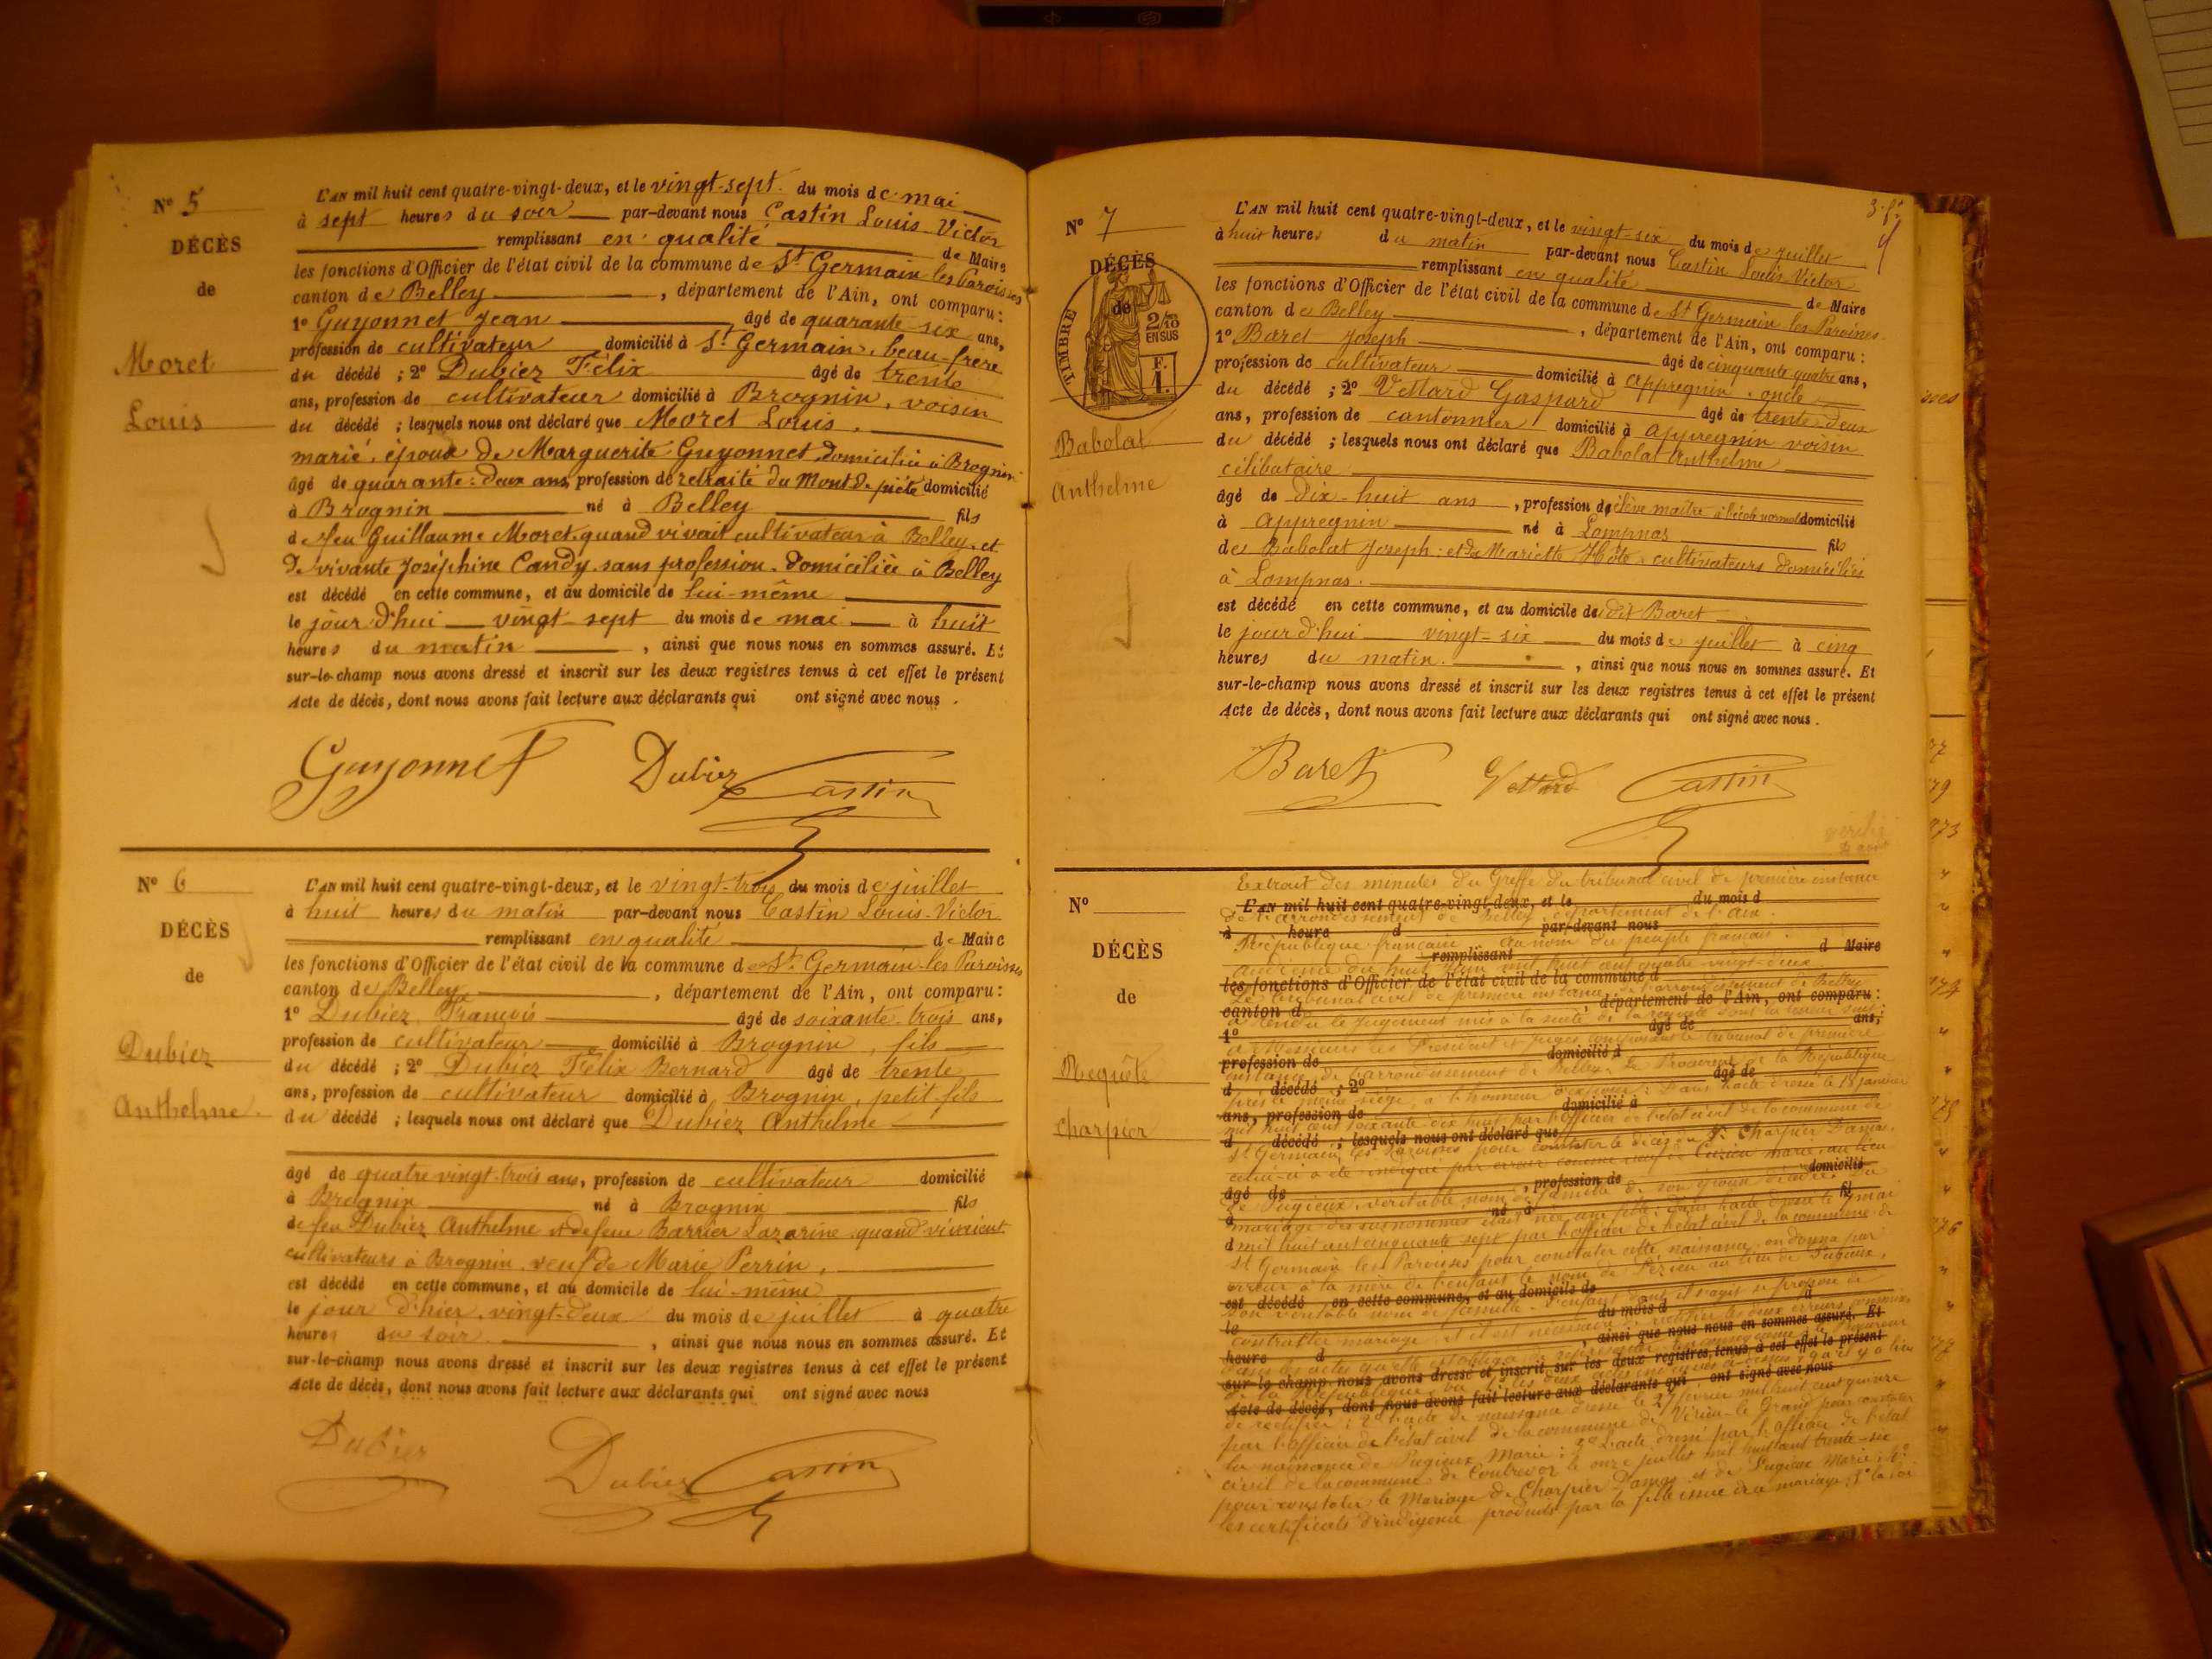 N° 5
DÉCÈS
de
Moret
Louis
L'AN mil huit cent quatre-vingt-deux, et le vingt-sept du mois de mai
à sept heures du soir par-devant nous Castin Louis-Victor
remplissant en qualité de Maire
les fonctions d'Officier de l'état civil de la commune de St Germain-les-Paroisses
canton de Belley, département de l'Ain, ont comparu :
1° Guyonnet Jean âgé de quarante-six ans,
profession de cultivateur domicilié à St Germain, beau-frère
du décédé ; 2° Dubiez Félix âgé de trente
ans, profession de cultivateur domicilié à Brognin, voisin
du décédé ; lesquels nous ont déclaré que Moret Louis,
marié, époux de Marguerite Guyonnet, domiciliée à Brognin
âgé de quarante-deux ans, profession de retraité du Mont de piété domicilié
à Brognin né à Belley fils
de feu Guillaume Moret, quand vivait cultivateur à Belley, et
de vivante Joséphine Candy, sans profession, domiciliée à Belley
est décédé en cette commune, et au domicile de lui-même
le jour d'hui vingt-sept du mois de mai à huit
heures du matin, ainsi que nous nous en sommes assuré. Et
sur-le-champ nous avons dressé et inscrit sur les deux registres tenus à cet effet le présent
Acte de décès, dont nous avons fait lecture aux déclarants qui ont signé avec nous.
Guyonnet Dubiez Castin
N° 6
DÉCÈS
de
Dubiez
Anthelme
L'AN mil huit cent quatre-vingt-deux, et le vingt-trois du mois de juillet
à huit heures du matin par-devant nous Castin Louis-Victor
remplissant en qualité de Maire
les fonctions d'Officier de l'état civil de la commune de St Germain-les-Paroisses
canton de Belley, département de l'Ain, ont comparu :
1° Dubiez François âgé de soixante-trois ans,
profession de cultivateur domicilié à Brognin, fils
du décédé ; 2° Dubiez Félix Bernard âgé de trente
ans, profession de cultivateur domicilié à Brognin, petit-fils
du décédé ; lesquels nous ont déclaré que Dubiez Anthelme
âgé de quatre vingt-trois ans, profession de cultivateur domicilié
à Brognin né à Brognin fils
de feu Dubiez Anthelme et de feue Barrier Lazarine quand vivaient
cultivateurs à Brognin, veuf de Marie Perrin,
est décédé en cette commune, et au domicile de lui-même
le jour d'hier, vingt-deux du mois de juillet à quatre
heures du soir, ainsi que nous nous en sommes assuré. Et
sur-le-champ nous avons dressé et inscrit sur les deux registres tenus à cet effet le présent
Acte de décès, dont nous avons fait lecture aux déclarants qui ont signé avec nous
Dubiez Dubiez Castin
N° 7
DÉCÈS
de
TIMBRE
2/10
EN SUS
F.
1.
Babolat
Anthelme
L'AN mil huit cent quatre-vingt-deux, et le vingt-six du mois de juillet
à huit heures du matin par-devant nous Castin Louis-Victor
remplissant en qualité de Maire
les fonctions d'Officier de l'état civil de la commune de St Germain les Paroisses
canton de Belley, département de l'Ain, ont comparu :
1° Baret Joseph âgé de cinquante quatre ans,
profession de cultivateur domicilié à Appregnin, oncle
du décédé ; 2° Vettard Gaspard âgé de trente-deux
ans, profession de cantonnier domicilié à Appregnin voisin
du décédé ; lesquels nous ont déclaré que Babolat Anthelme
célibataire
âgé de dix-huit ans, profession d'élève maître à l'école normale domicilié
à Appregnin né à Lompnas fils
de Babolat Joseph et de Mariette Hôte, cultivateurs domiciliés
à Lompnas.
est décédé en cette commune, et au domicile de dit Baret
le jour d'hui vingt-six du mois de juillet à cinq
heures du matin, ainsi que nous nous en sommes assuré. Et
sur-le-champ nous avons dressé et inscrit sur les deux registres tenus à cet effet le présent
Acte de décès, dont nous avons fait lecture aux déclarants qui ont signé avec nous.
Baret Vettard Castin
N°
DÉCÈS
de
Requête
Charpier
Extrait des minutes du Greffe du tribunal civil de première instance
L'AN mil huit cent quatre-vingt-deux, et le du mois d
de l'arrondissement de Belley, département de l'Ain.
à heure d par-devant nous
République française au nom du peuple français.
remplissant d Maire
audience du huit mil huit cent quatre-vingt-deux
les fonctions d'Officier de l'état civil de la commune d
Le tribunal civil de première instance de l'arrondissement de Belley
canton d, département de l'Ain, ont comparu :
a rendu le jugement mis à la suite de la requête dont la teneur suit
1° âgé de ans,
à Messieurs les Président et juges composant le tribunal de première
profession de domicilié à
instance de l'arrondissement de Belley. Le Procureur de la République
d décédé ; 2° âgé de
près le même siège, a l'honneur d'exposer : Dans l'acte dressé le 18 janvier
ans, profession de domicilié à
mil huit cent soixante dix huit par l'officier de l'état civil de la commune de
d décédé ; lesquels nous ont déclaré que
St Germain les Paroisses pour constater le décès du Sr Charpier Damas,
celui-ci a été indiqué par erreur comme veuf de Cuzieu Marie, au lieu
âgé de, profession de domicilié
de Pugieux, véritable nom de famille de son épouse décédée. Du
à né à fil
mariage des susnommés était née une fille. Dans l'acte dressé le 9 mai
d mil huit cent cinquante sept par l'officier de l'état civil de la commune de
St Germain les Paroisses pour constater cette naissance on donna par
erreur à la mère de l'enfant le nom de Pezieu au lieu de Pugieux,
est décédé en cette commune, et au domicile de
son véritable nom de famille. L'enfant dont il s'agit se propose de
le du mois d à
contracter mariage et il est nécessaire de rectifier les deux erreurs
heure d, ainsi que nous nous en sommes assuré. Et
sur-le-champ nous avons dressé et inscrit sur les deux registres tenus à cet effet le présent
Acte de décès, dont nous avons fait lecture aux déclarants qui ont signé avec nous
de rectifier ; 2° l'acte de naissance dressé le 27 février mil huit cent quinze
par l'officier de l'état civil de la commune de Virieu-le-Grand pour constater
la naissance de Pugieux Marie ; 3° l'acte dressé par l'officier de l'état
civil de la commune de Contrevoz le onze juillet mil huit cent trente-six
pour constater le Mariage de Charpier Damas et de Pugieux Marie ; 4°
les certificats d'indigence produits par la fille issue de ce mariage ; 5° la loi